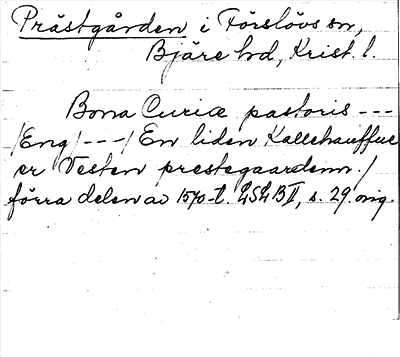 Prästgården i Förslövs sn,
Bjäre hd, Krist. l.
Bona Curiæ pastoris ---
/Eng/ ---/ En liden Kallehauffue
er Vesten prestegaardenn./
förra delen av 1570-t. LSLB II, s. 29. orig.